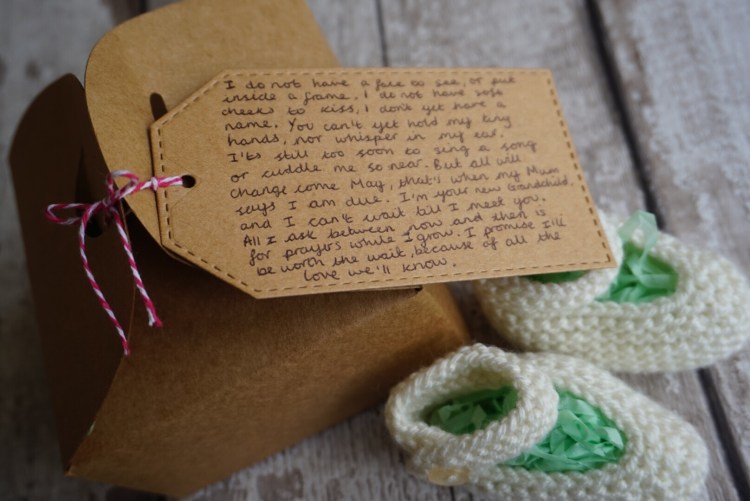 I do not have a face to see, or put
inside a frame. I do not have soft
cheeks to kiss, I don't yet have a
name. You can't yet hold my tiny
hands, nor whisper in my ear.
I'ts still too soon to sing a song
or cuddle me so near. But all will
change come May, that's when my Mum
says I am due. I'm your new Grandchild
and I can't wait till I meet you.
All I ask between now and then is
for prayers while I grow. I promise I'll
be worth the wait, because of all the
love we'll know.